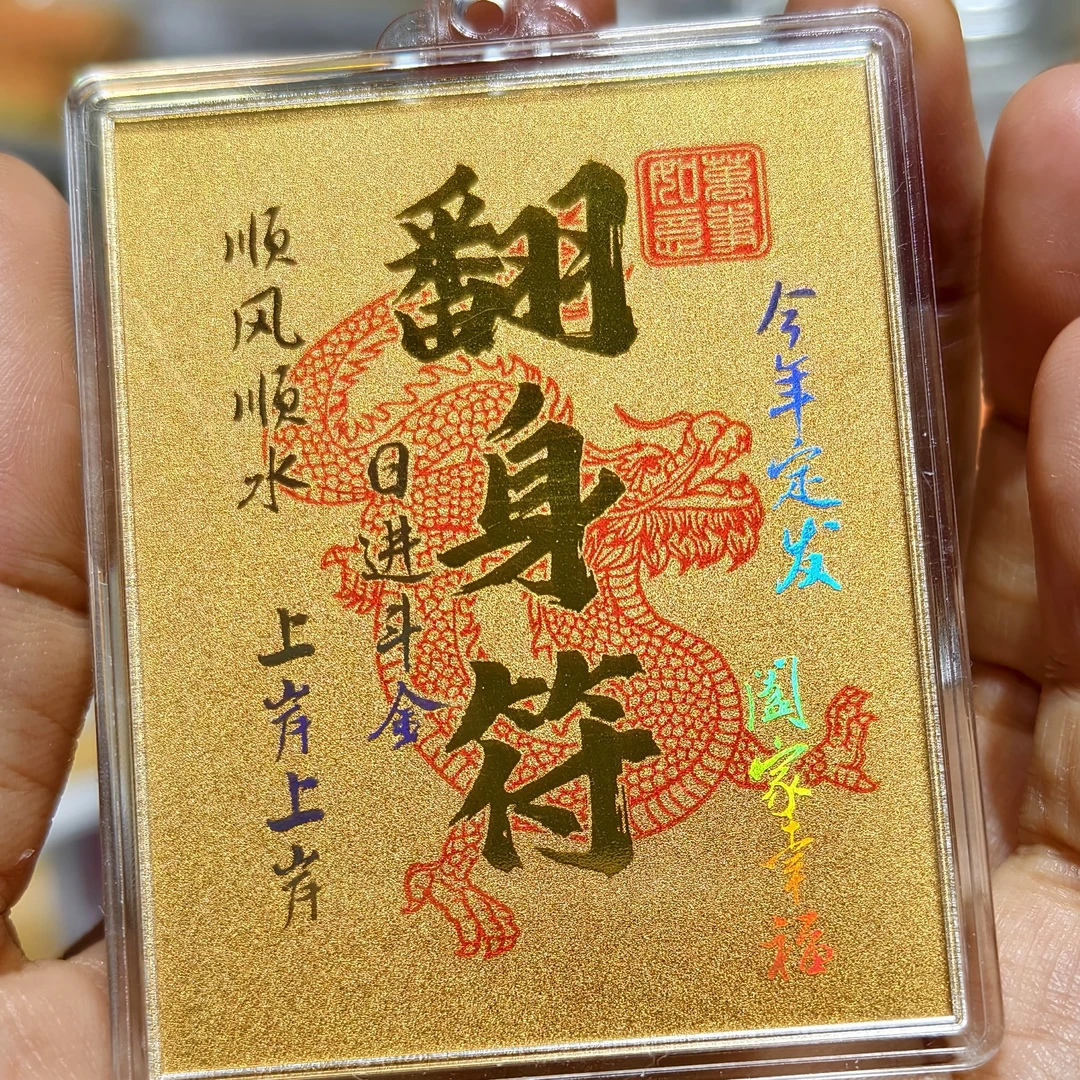 萬事如意
今年定发
阖家幸福
翻身符
日进斗金
顺风顺水
上岸上岸